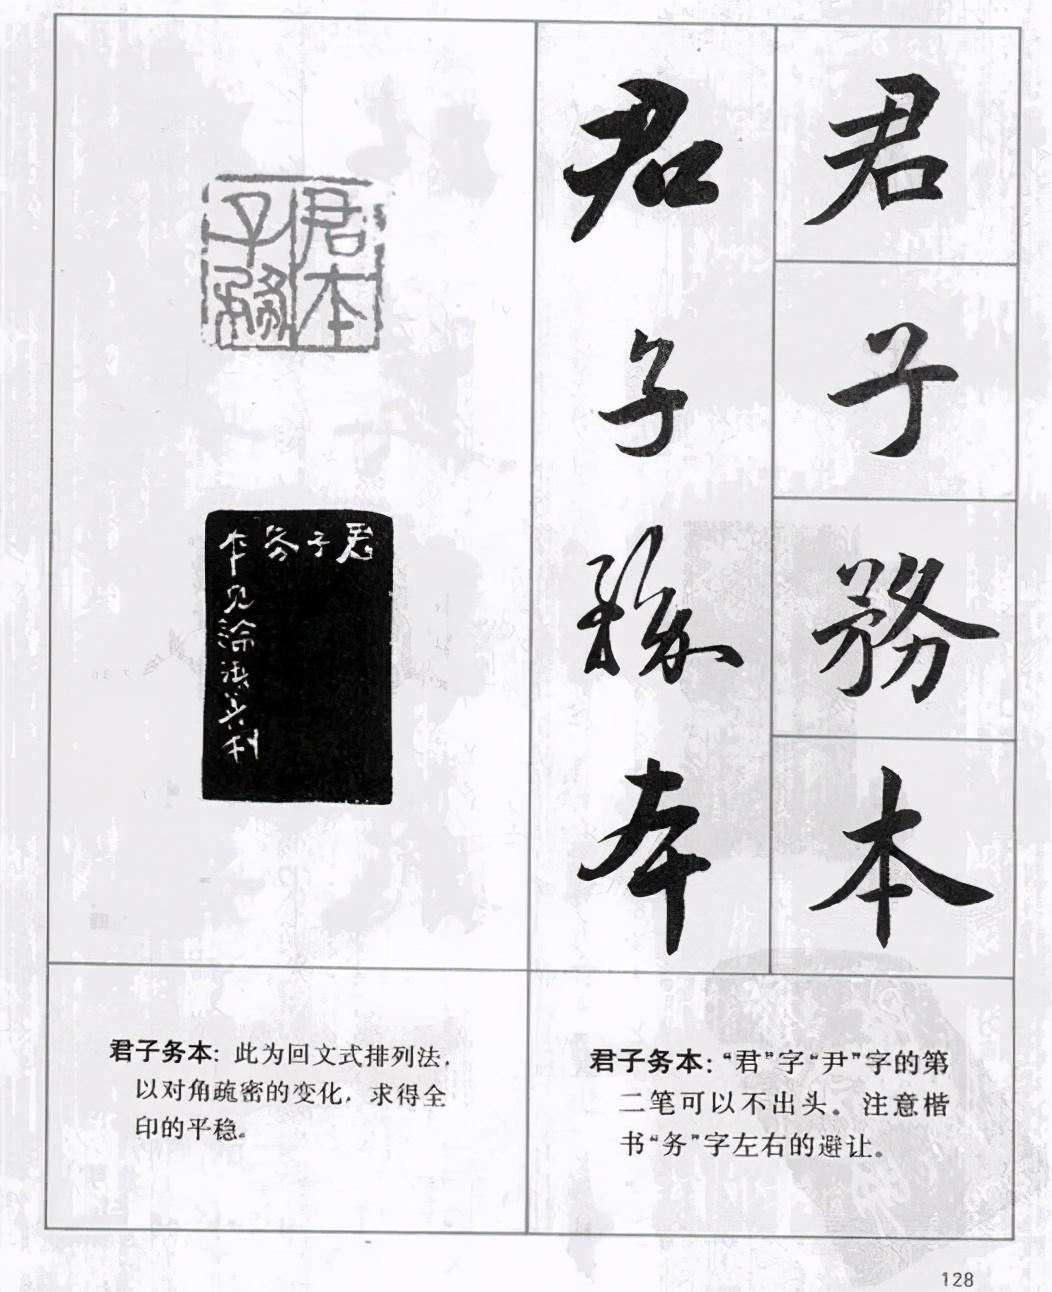 君子務本
君子務本
君子
務本
君
子
务
本见论语兴利
君子务本：此为回文式排列法，
以对角疏密的变化，求得全
印的平稳。
君子务本：“君”字“尹”字的第
二笔可以不出头。注意楷
书“务”字左右的避让。
128